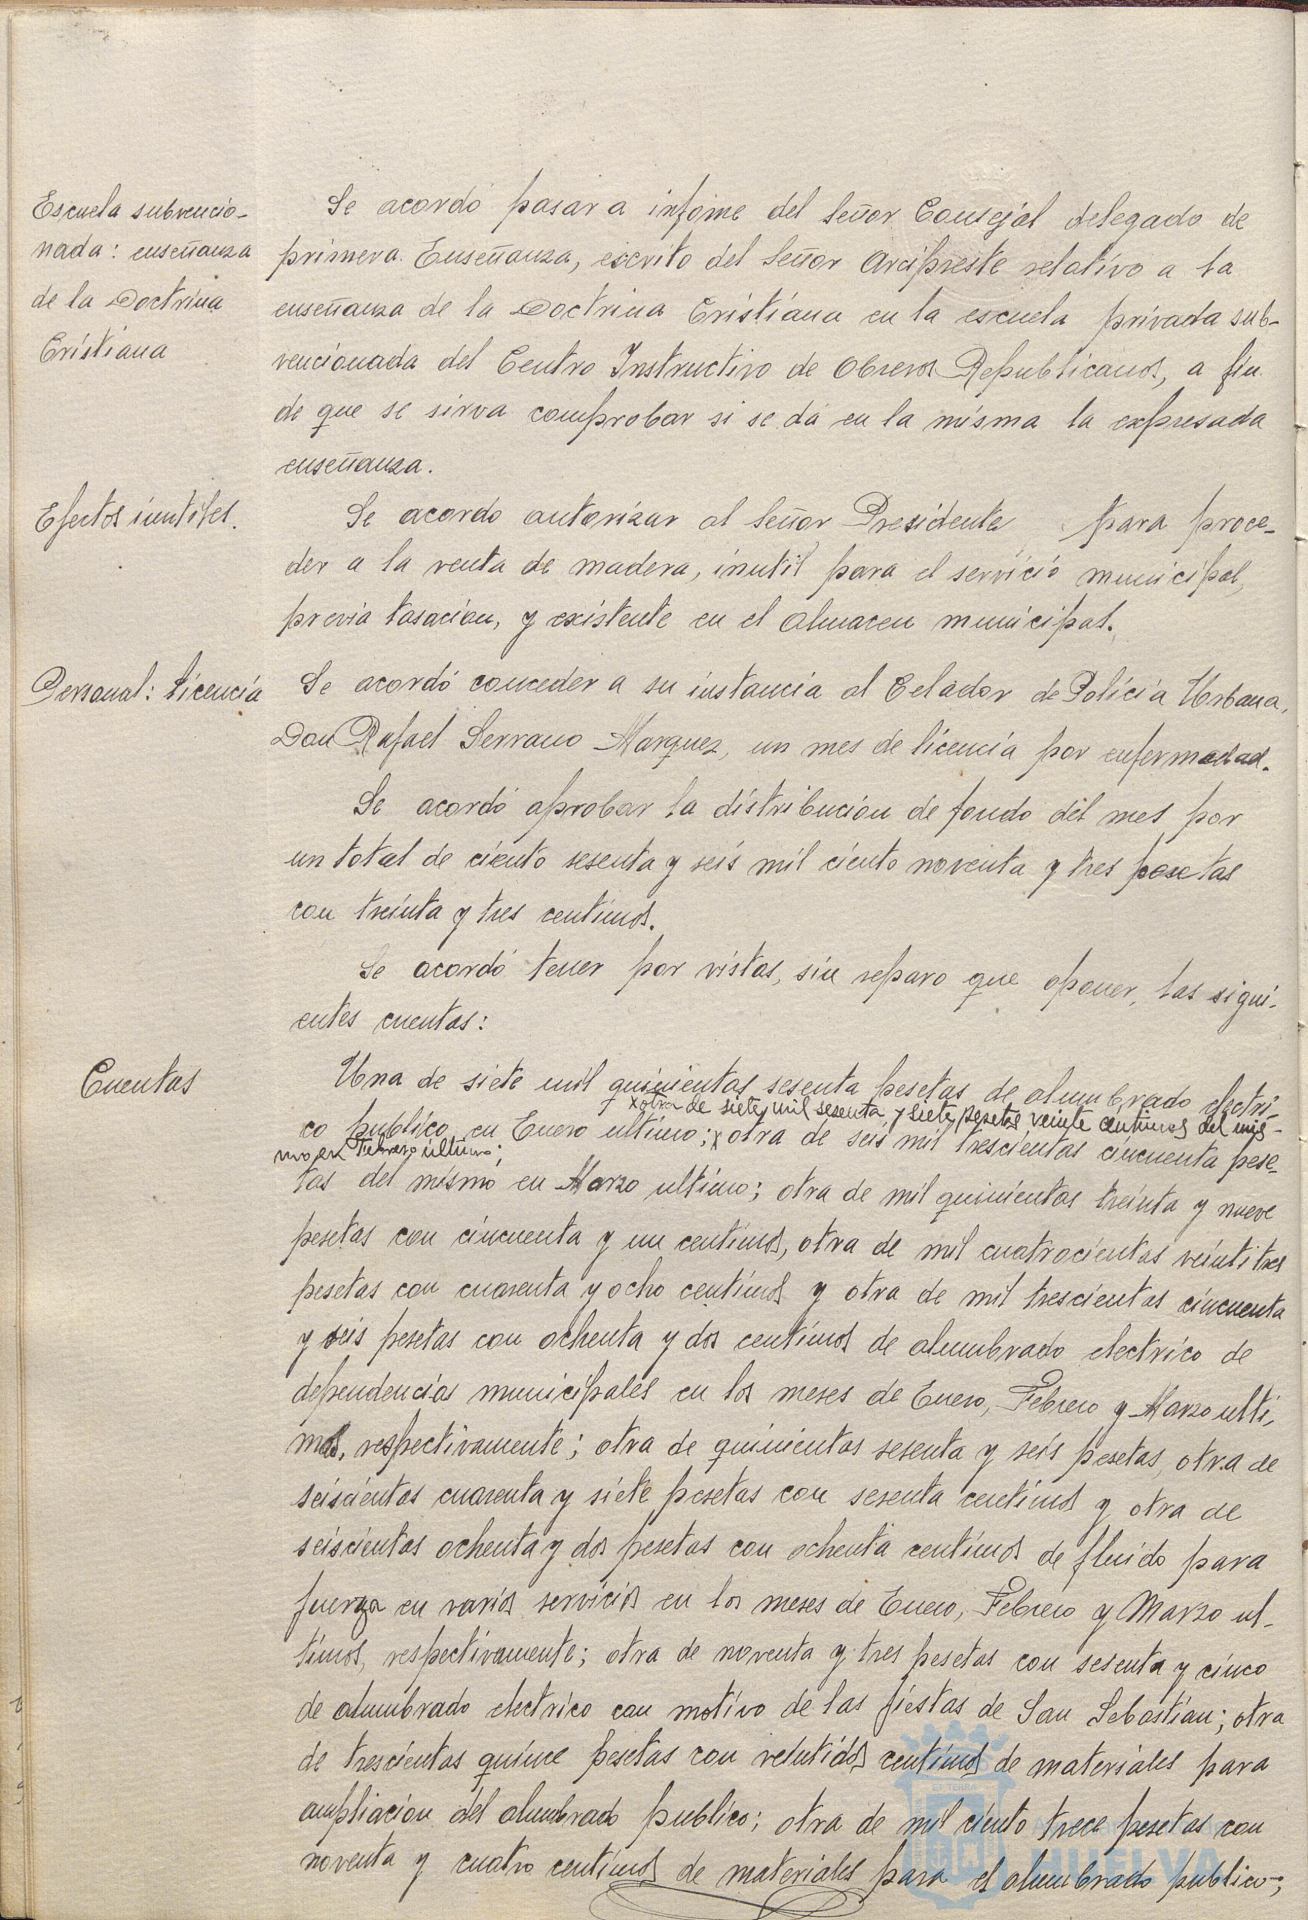 Escuela subvencio-
nada: enseñanza
de la Doctrina
Cristiana
Se acordó pasar a informe del Señor Consejal delegado de
primera Enseñanza, escrito del Señor Arcipreste relativo a la
enseñanza de la Doctrina Cristiana en la escuela privada sub-
vencionada del Centro Instructivo de Obreros Republicanos, a fin
de que se sirva comprobar si se dá en la misma la expresada
enseñanza.
Efectos inutiles.
Se acordo autorizar al Señor Presidente para proce-
der a la venta de madera, inutil para el servicio municipal,
previa tasacion, y existente en el almacen municipal.
Personal: licencia
Se acordó conceder a su instancia al Celador de Policia Urbana,
Don Rafael Serrano Marquez, un mes de licencia por enfermedad.
Se acordó aprobar la distribucion de fondo del mes por
un total de ciento sesenta y seis mil ciento noventa y tres pesetas
con treinta y tres centimos.
Se acordó tener por vistas, sin reparo que oponer, las sigui-
entes cuentas:
Cuentas
Una de siete mil quinientas sesenta pesetas de alumbrado electri-
x otra de siete mil sesenta y siete pesetas veinte centimos del mis-
co publico en Enero ultimo; x otra de seis mil trescientas cincuenta pese-
mo en Febrero ultimo;
tas del mismo en Marzo ultimo; otra de mil quinientas treinta y nueve
pesetas con cincuenta y un centimos, otra de mil cuatrocientas veintitres
pesetas con cuarenta y ocho centimos y otra de mil trescientas cincuenta
y seis pesetas con ochenta y dos centimos de alumbrado electrico de
dependencias municipales en los meses de Enero, Febrero y Marzo ulti-
mos, respectivamente; otra de quinientas sesenta y seis pesetas, otra de
seiscientas cuarenta y siete pesetas con sesenta centimos y otra de
seiscientas ochenta y dos pesetas con ochenta centimos de fluido para
fuerza en varios servicios en los meses de Enero, Febrero y Marzo ul-
timos, respectivamente; otra de noventa y tres pesetas con sesenta y cinco
de alumbrado electrico con motivo de las fiestas de San Sebastian; otra
de trescientas quince pesetas con veintidós centimos de materiales para
ampliacion del alumbrado publico; otra de mil ciento trece pesetas con
noventa y cuatro centimos de materiales para el alumbrado publico;
HUELVA